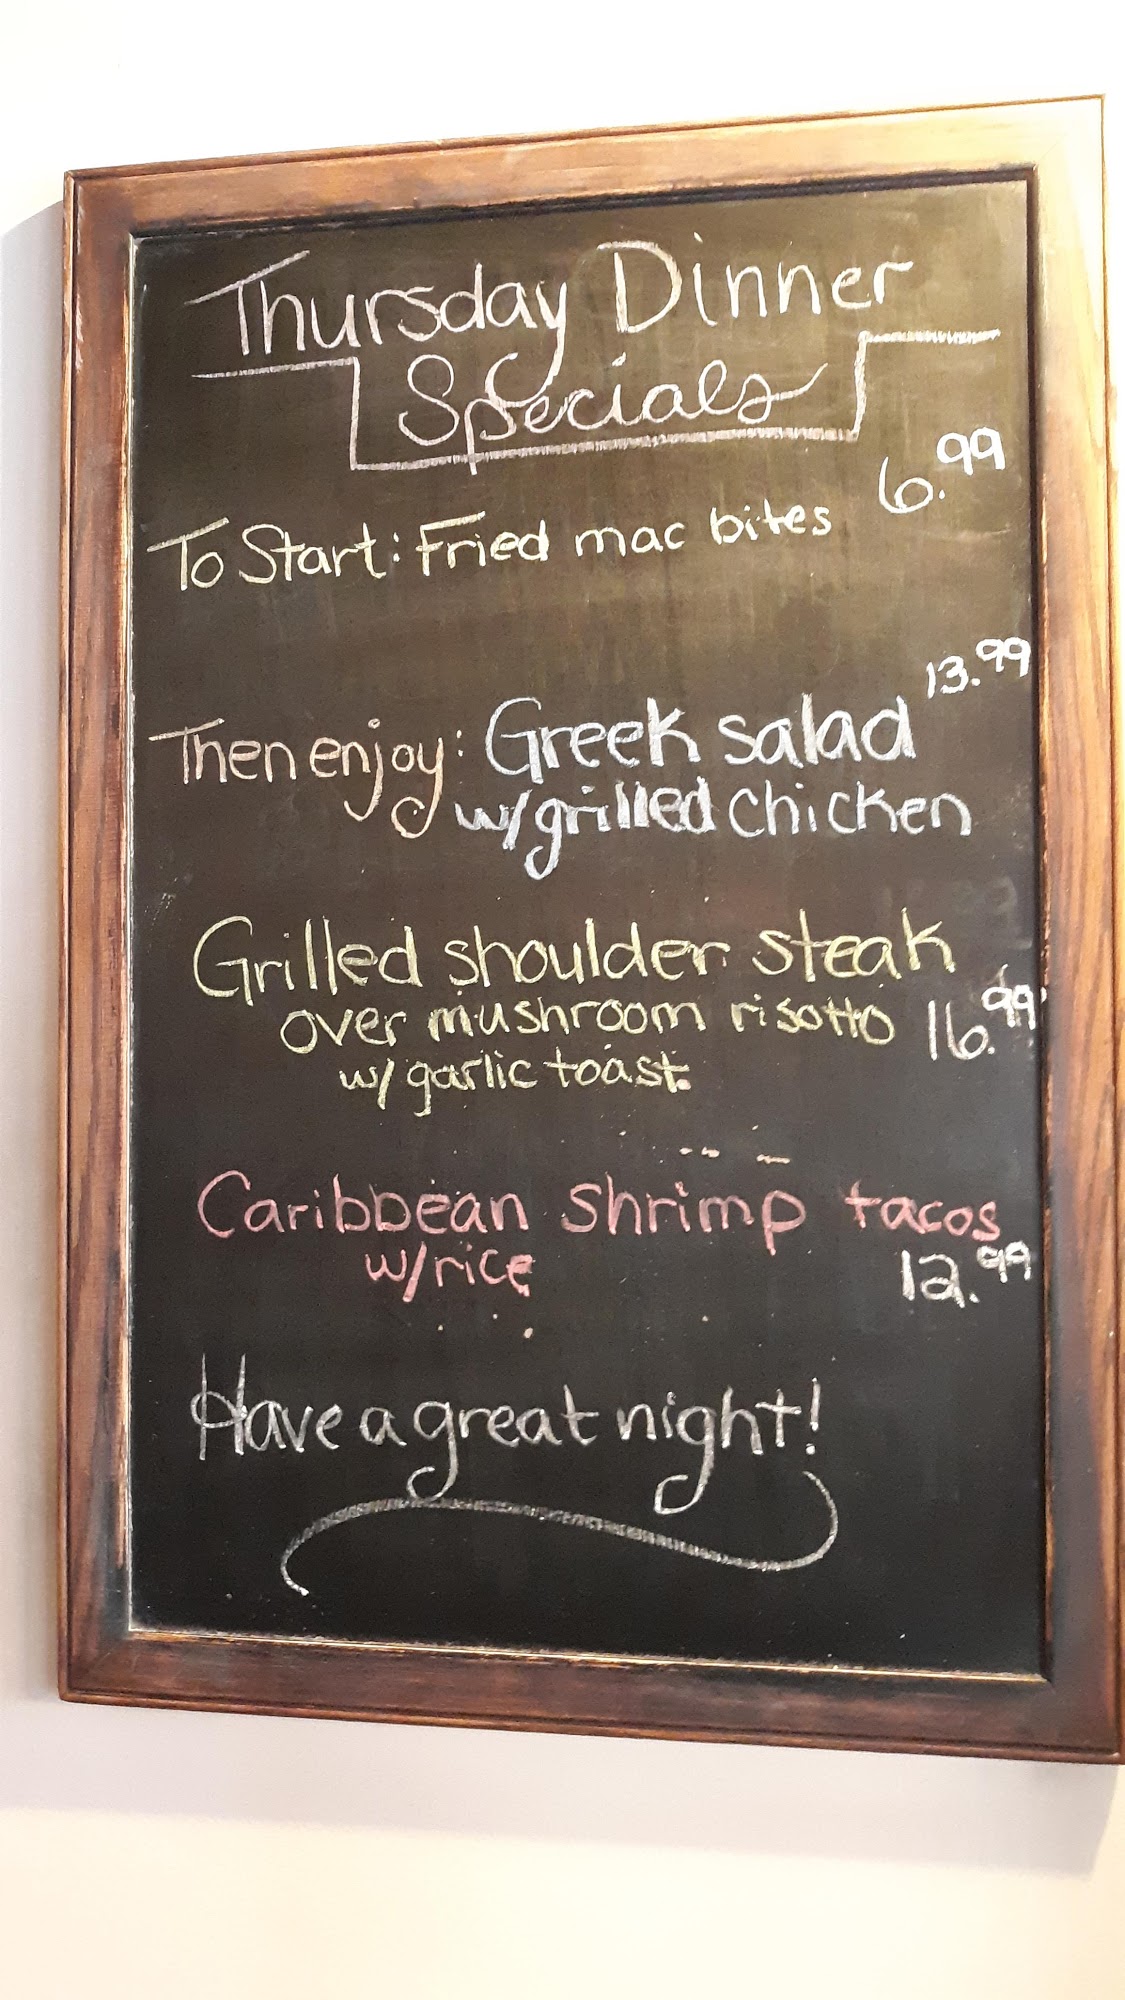 Thursday Dinner
Specials
To Start: Fried mac bites 6.99
Then enjoy: Greek salad 13.99
w/grilled chicken
Grilled shoulder steak
over mushroom risotto 16.99
w/ garlic toast
Caribbean shrimp tacos
w/rice 12.99
Have a great night!